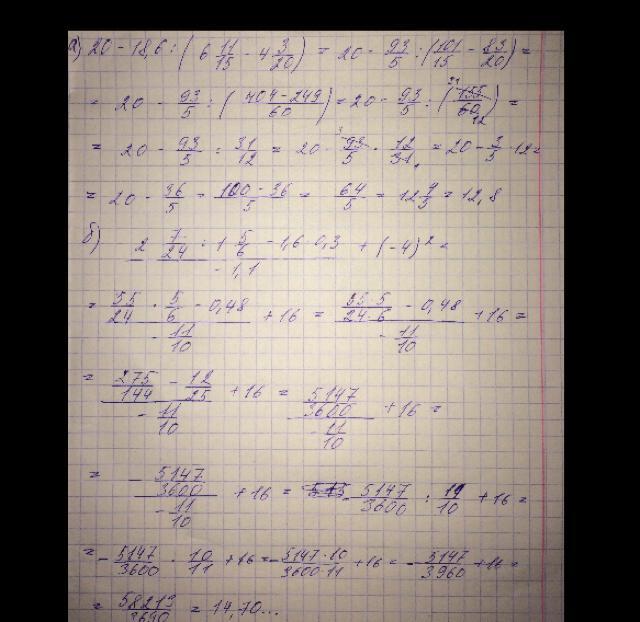 а) 20 - 18,6 : (6 11/15 - 4 3/20) = 20 - 93/5 : (101/15 - 83/20) =
= 20 - 93/5 : (404-249/60) = 20 - 93/5 : (155/60) =
= 20 - 93/5 : 31/12 = 20 - 93/5 · 12/31 = 20 - 3/5 · 12 =
= 20 - 36/5 = 100-36/5 = 64/5 = 12 4/5 = 12,8
б) 2 7/24 : 1 5/6 - 1,6·0,3 / -1,1 + (-4)² =
= 55/24 · 5/6 - 0,48 / -11/10 + 16 = 55·5/24·6 - 0,48 / -11/10 + 16 =
= 275/144 - 12/25 / -11/10 + 16 = 5147/3600 / -11/10 + 16 =
= - 5147/3600 / -11/10 + 16 = - 5147/3600 : 11/10 + 16 =
= - 5147/3600 · 10/11 + 16 = - 5147·10/3600·11 + 16 = - 5147/3960 + 16 =
= = 14,70...